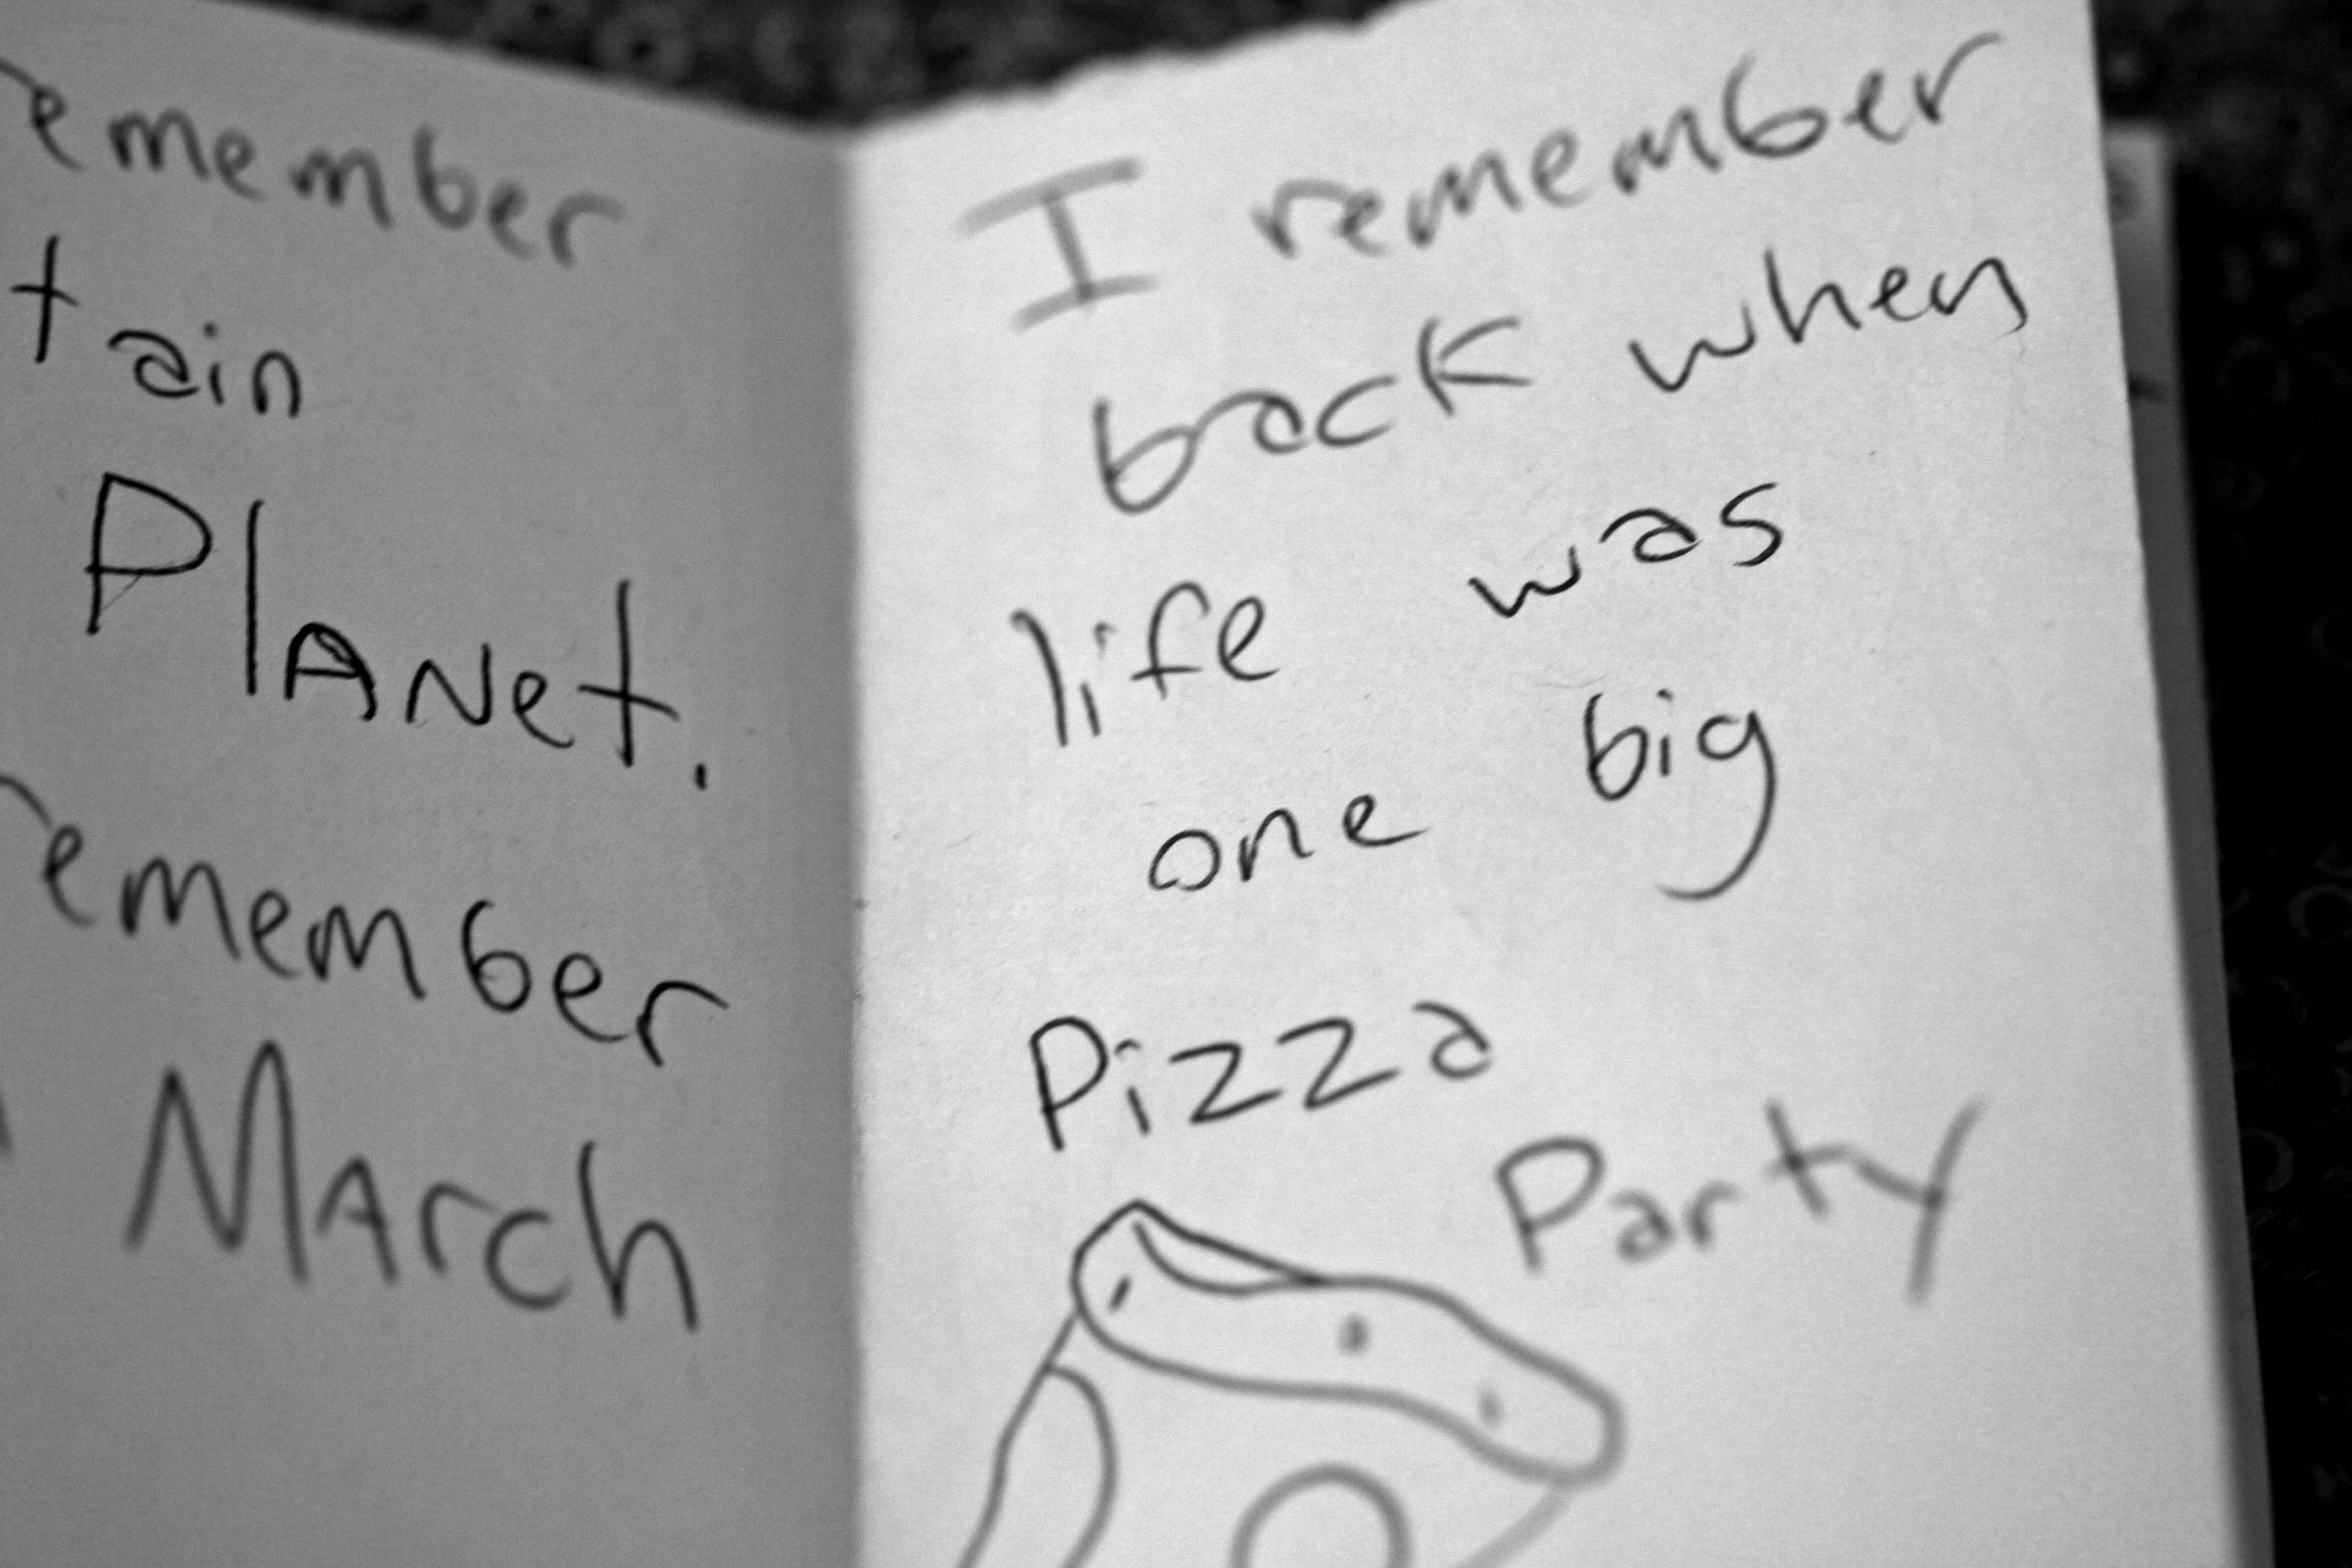 remember
tain
PlANet.
remember
MArch
I remember
back when
life was
one big
Pizza
Party